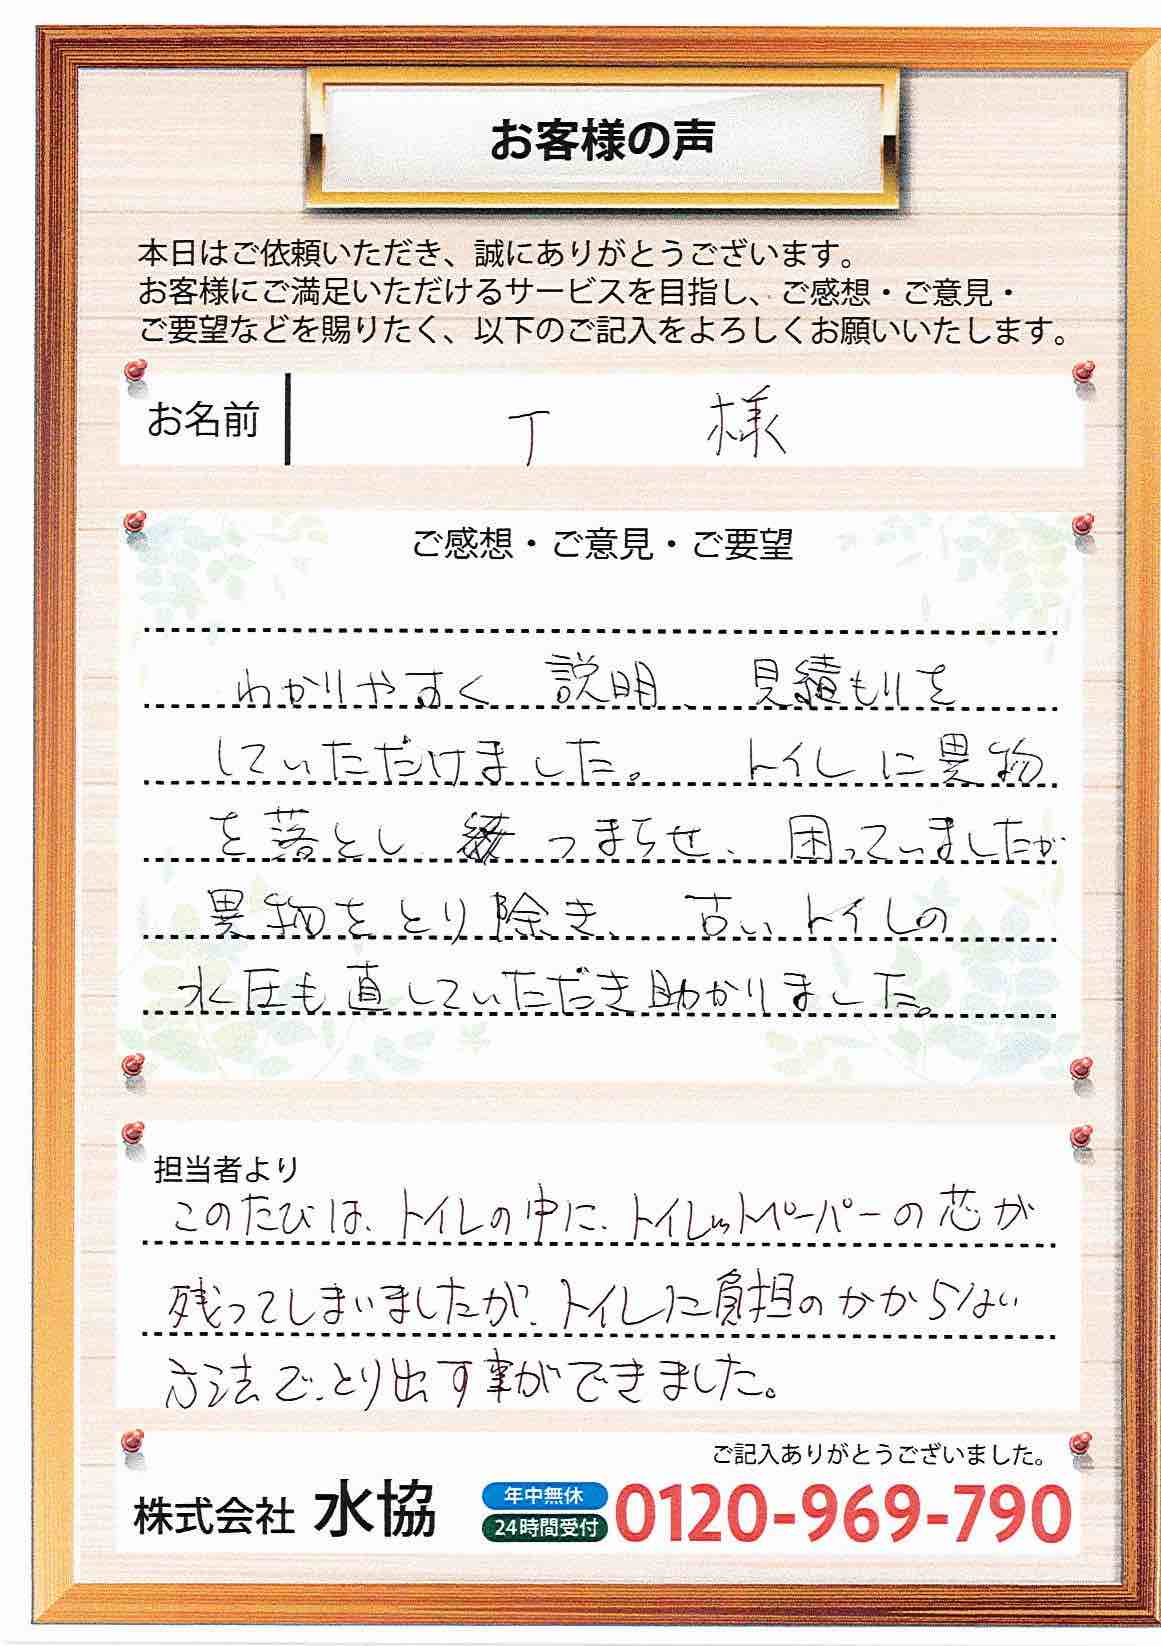 お客様の声
本日はご依頼いただき、誠にありがとうございます。
お客様にご満足いただけるサービスを目指し、ご感想・ご意見・
ご要望などを賜りたく、以下のご記入をよろしくお願いいたします。
お名前 T 様
ご感想・ご意見・ご要望
わかりやすく 説明、見積もりを
していただけました。 トイレに異物
を落とし、つまらせ、困っていましたが
異物をとり除き、古いトイレの
水圧も直していただき助かりました。
担当者より
このたびは、トイレの中に、トイレットペーパーの芯が
残ってしまいましたが、トイレに負担のかからない
方法で、とり出す事ができました。
ご記入ありがとうございました。
株式会社 水協 年中無休 24時間受付 0120-969-790